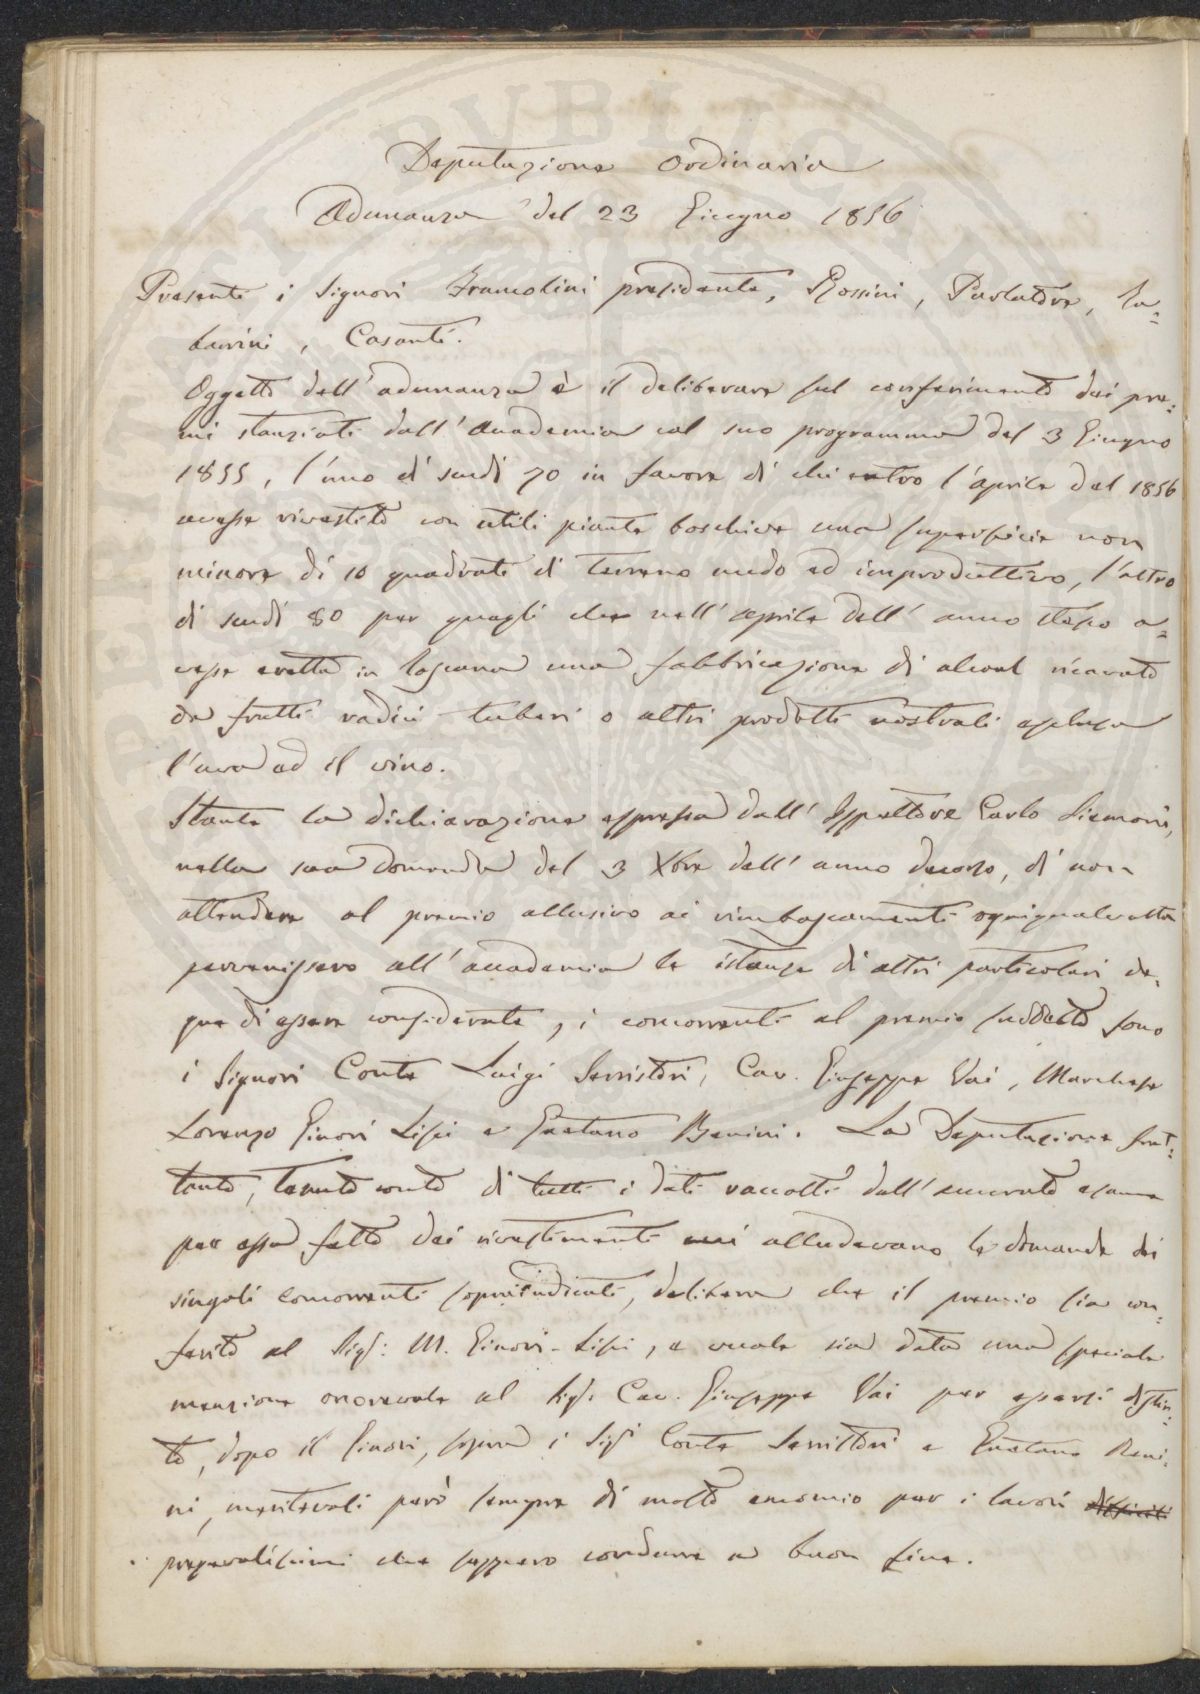 Deputazione Ordinaria
Adunanza del 23 Giugno 1856
Presenti i Signori Francolini presidente, Rossini, Parlatore, Ta=
barrini, Casanti.
Oggetto dell'adunanza è il deliberare sul conferimento dei pre=
mi stanziati dall'Accademia col suo programma del 3 Giugno
1855, l'uno di scudi 70 in favore di chi entro l'aprile del 1856
avesse rivestito con utili piante boschive una superficie non
minore di 10 quadrati di terreno nudo ed improduttivo, l'altro
di scudi 80 per quegli che nell'aprile dell'anno stesso a=
vesse eretta in Toscana una fabbricazione di alcool ricavato
da frutti radici tuberi o altri prodotti nostrali esclusa
l'uva ed il vino.
Stante la dichiarazione espressa dall'Ispettore Carlo Siemoni,
nella sua domanda del 3 Xbre dell'anno decorso, di non
attendere al premio allusivo ai rimboscamenti ogniqualvolta
pervenissero all'accademia le istanze di altri particolari de=
gne di essere considerate, i concorrenti al premio suddetto sono
i Signori Conte Luigi Serristori, Cav. Giuseppe Vai, Marchese
Lorenzo Ginori Lisci e Gaetano Benini. La Deputazione frat=
tanto, tenuto conto di tutti i dati raccolti dall'accurato esame
per essa fatto dei rivestimenti cui alludevano le domande dei
singoli concorrenti sopraindicati, delibera che il premio sia con=
ferito al Sigr: M. Ginori-Lisci, e vuole sia data una speciale
menzione onorevole al Sigr. Cav. Giuseppe Vai per essersi distin=
to, dopo il Ginori, sopra i Sigri Conte Serristori e Gaetano Beni=
ni, meritevoli però sempre di molto encomio per i lavori difficili
pregevolissimi che seppero condurre a buon fine.